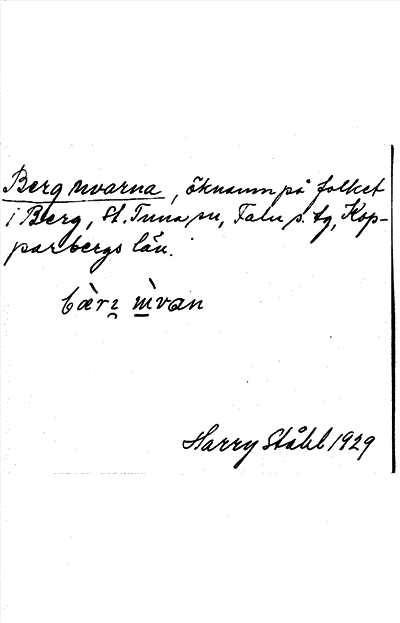 Berg uvarna, öknamn på folket
i Berg, St. Tuna sn, Falu s. tg, Kop-
parbergs län.
bæ̀rɪ ùvan
Harry Ståhl 1929